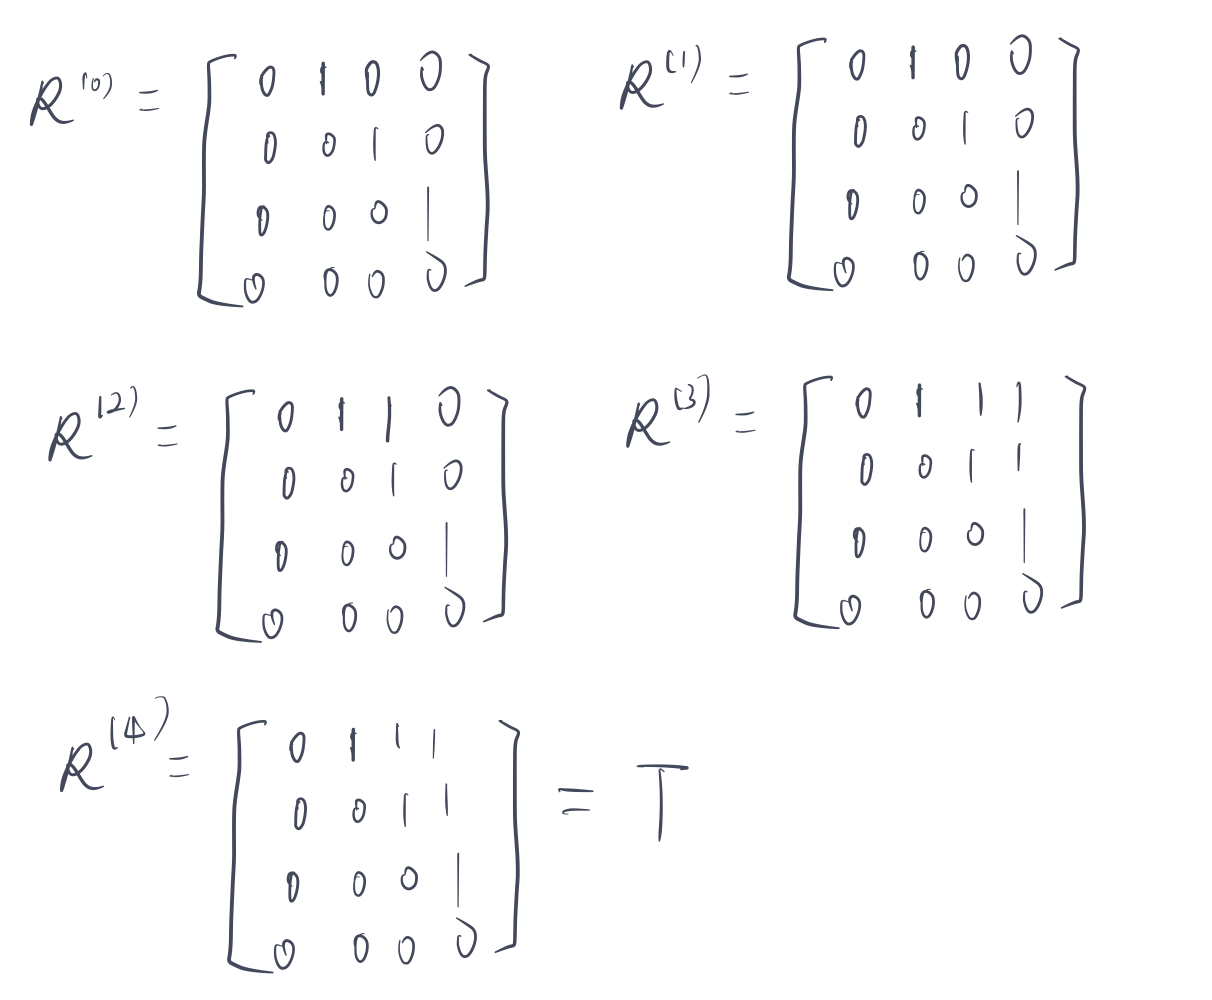 R^(0) = [ 0 1 0 0    R^(1) = [ 0 1 0 0
0 0 1 0    0 0 1 0
0 0 0 1    0 0 0 1
0 0 0 0 ]    0 0 0 0 ]
R^(2) = [ 0 1 1 0    R^(3) = [ 0 1 1 1
0 0 1 0    0 0 1 1
0 0 0 1    0 0 0 1
0 0 0 0 ]    0 0 0 0 ]
R^(4) = [ 0 1 1 1
0 0 1 1
0 0 0 1
0 0 0 0 ] = T